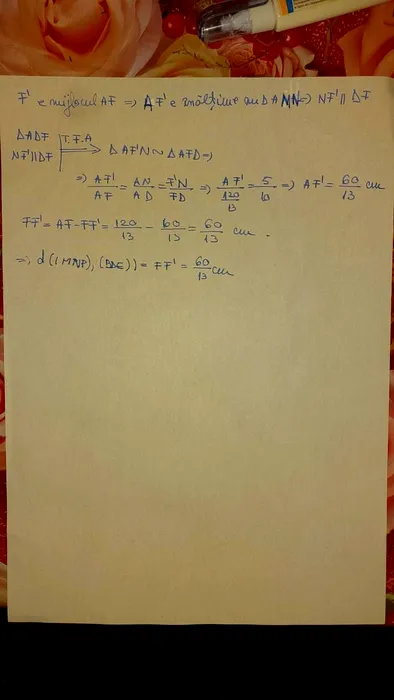 F' e mijlocul AF => AF' e înălțime în ΔANN => NF' || DF
ΔADF
NF' || DF | T.F.A => ΔAF'N ~ ΔAFD =>
=> AF'/AF = AN/AD = F'N/FD => AF'/(120/13) = 5/10 => AF' = 60/13 cm
FF' = AF - FF' = 120/13 - 60/13 = 60/13 cm.
=> d((MNP), (BDE)) = FF' = 60/13 cm